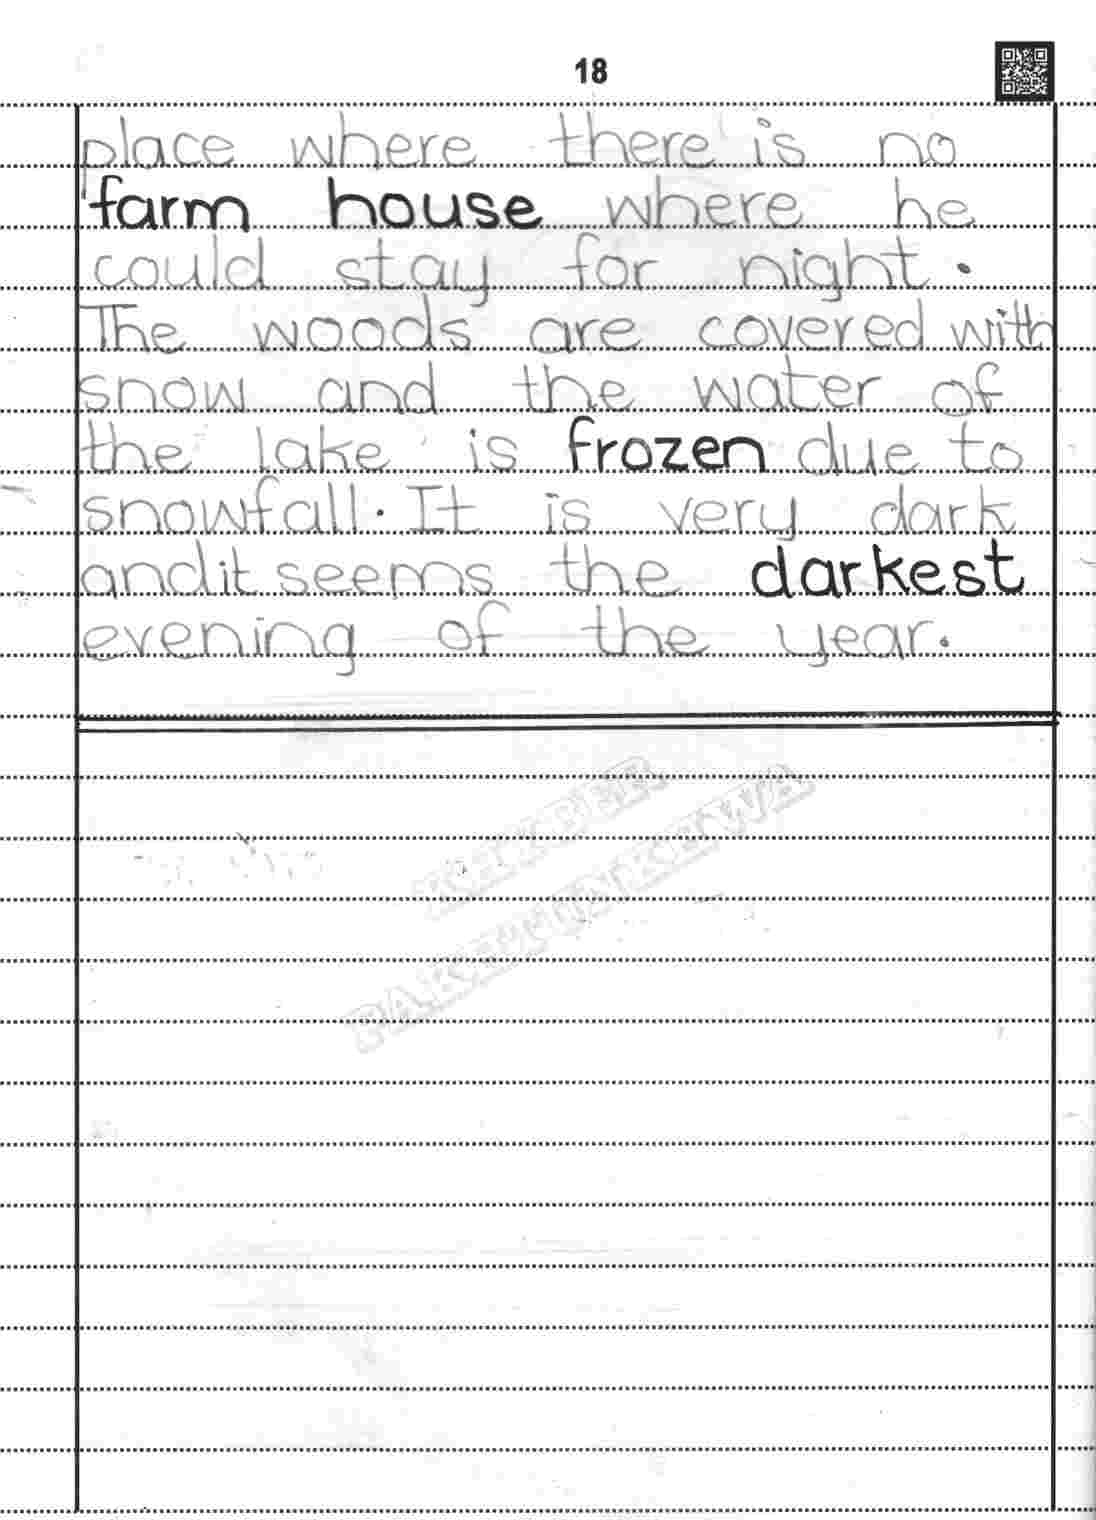 18
place where there is no
farm house where he
could stay for night.
The woods are covered with
snow and the water of
the lake is frozen due to
snowfall. It is very dark
and it seems the darkest
evening of the year.
KHYBER
PAKHTUNKHWA